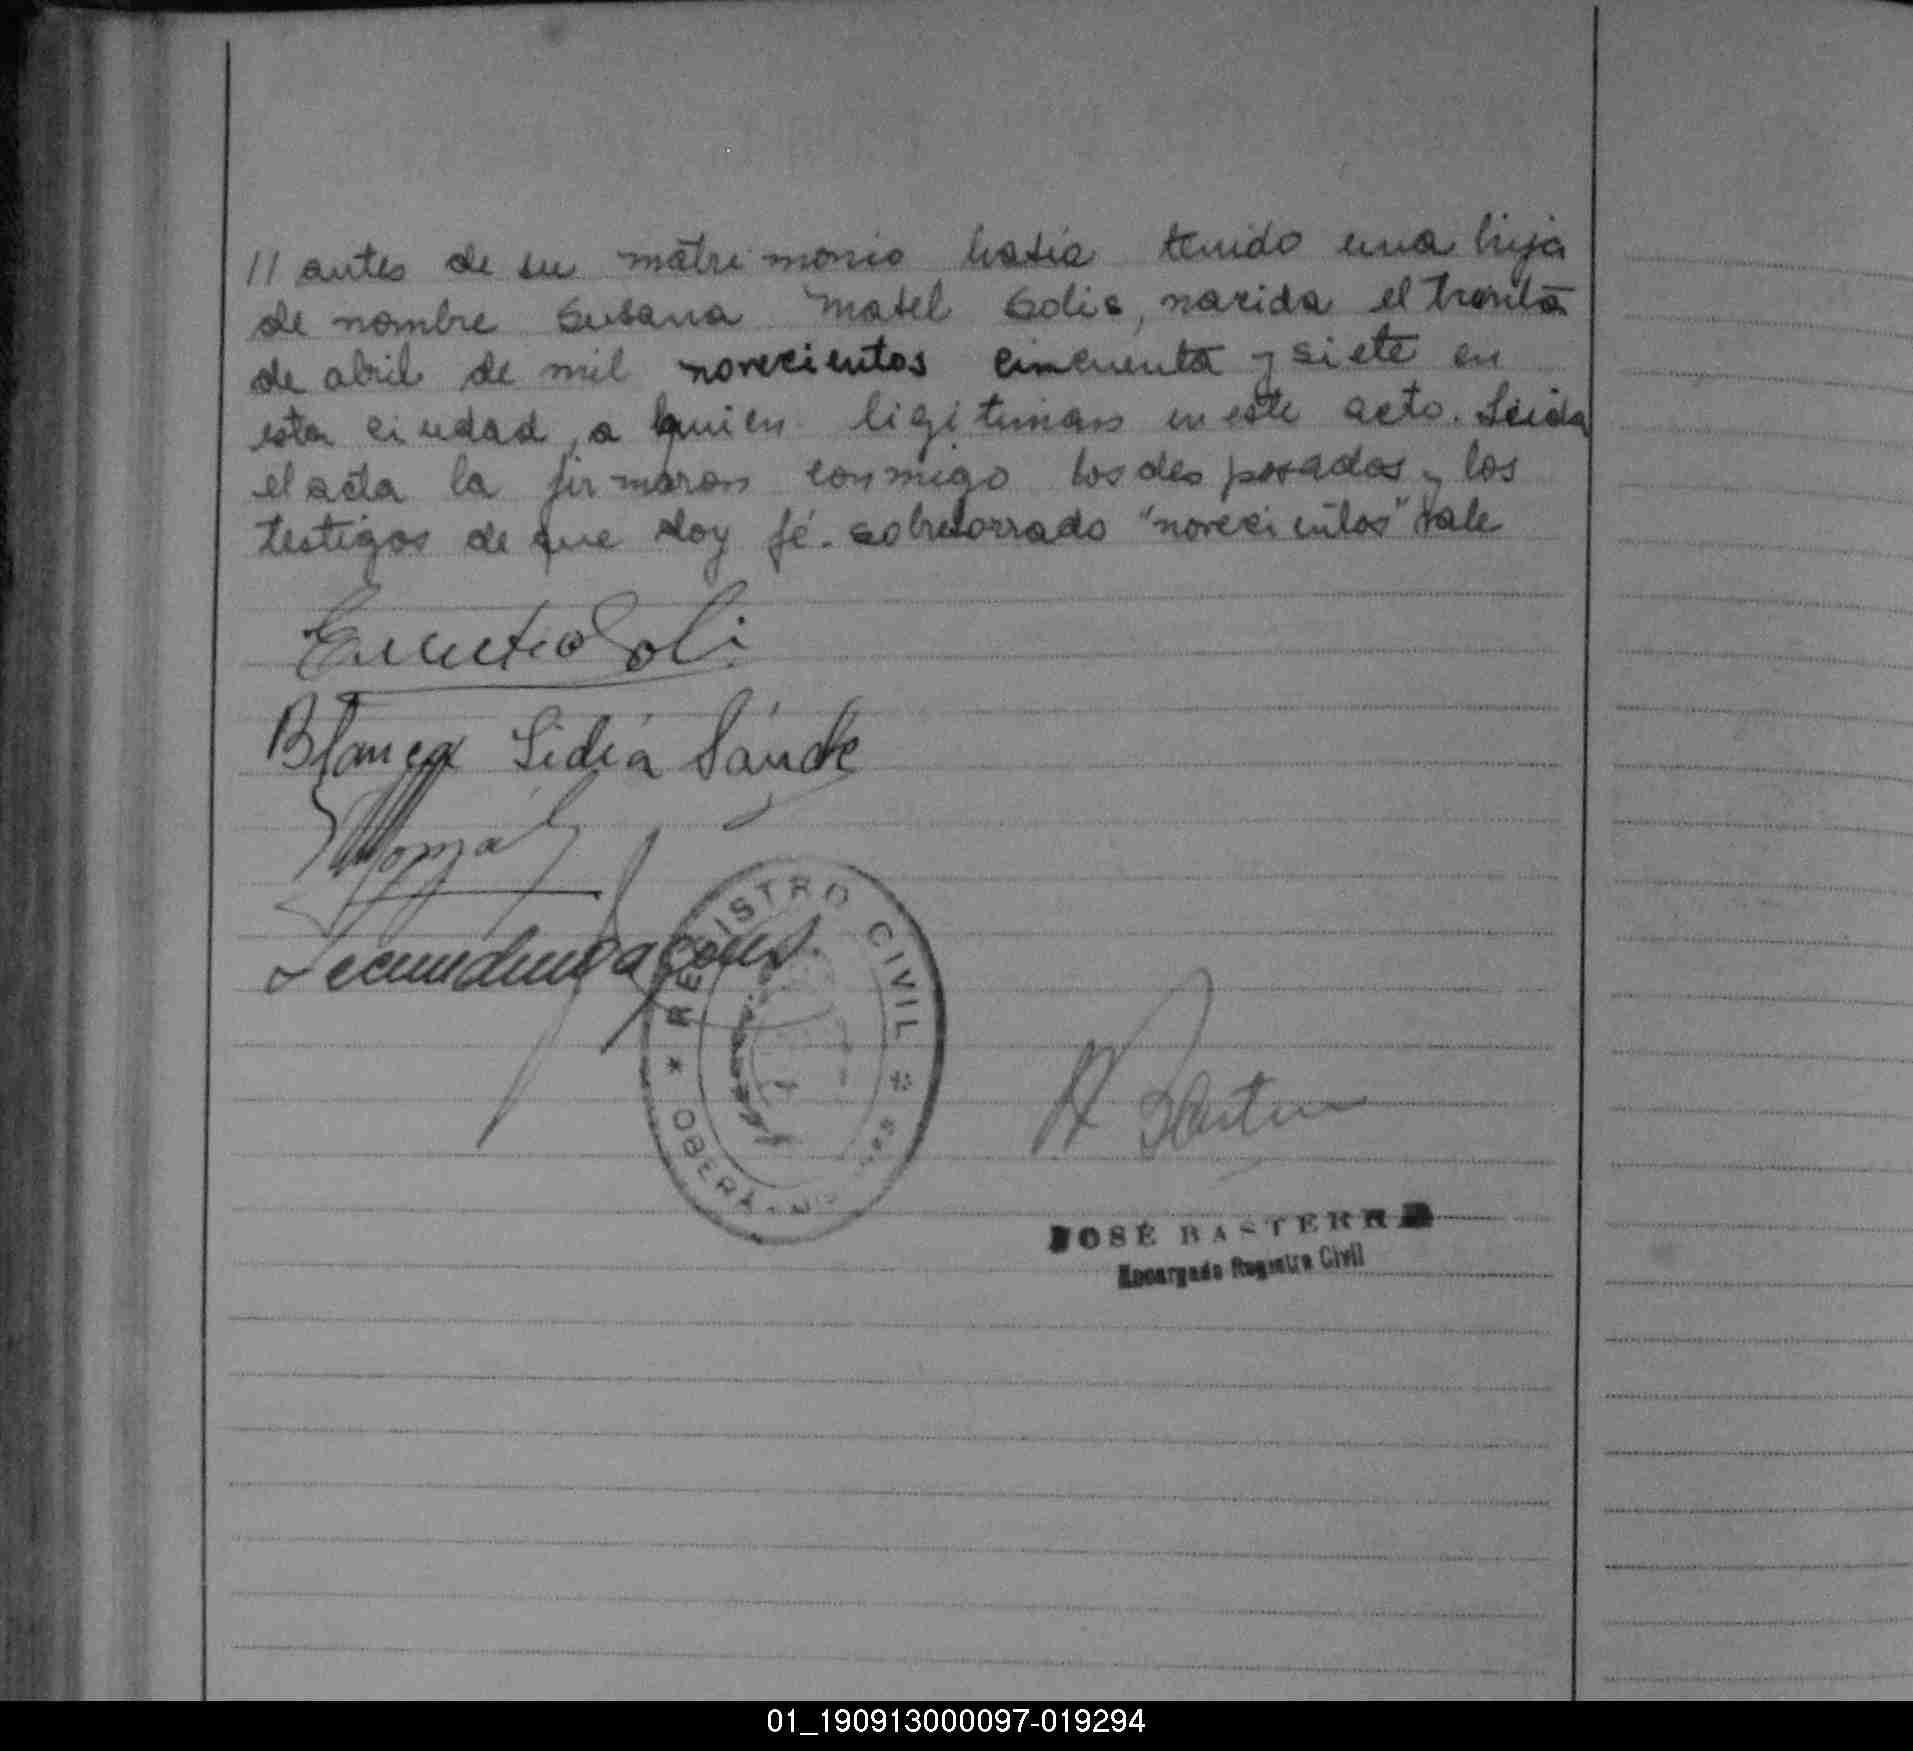 // antes de su matrimonio había tenido una hija
de nombre Susana Mabel Solis, nacida el treinta
de abril de mil novecientos cincuenta y siete en
esta ciudad, a quien ligitiman en este acto. Leida
el acta la firmaron conmigo los desposados y los
testigos de que doy fé. sobreborrado "novecientos" vale
Blanca Lidia
REGISTRO CIVIL
* OBERÁ
JOSÉ BASTERRA
Encargado Registro Civil
01_190913000097-019294